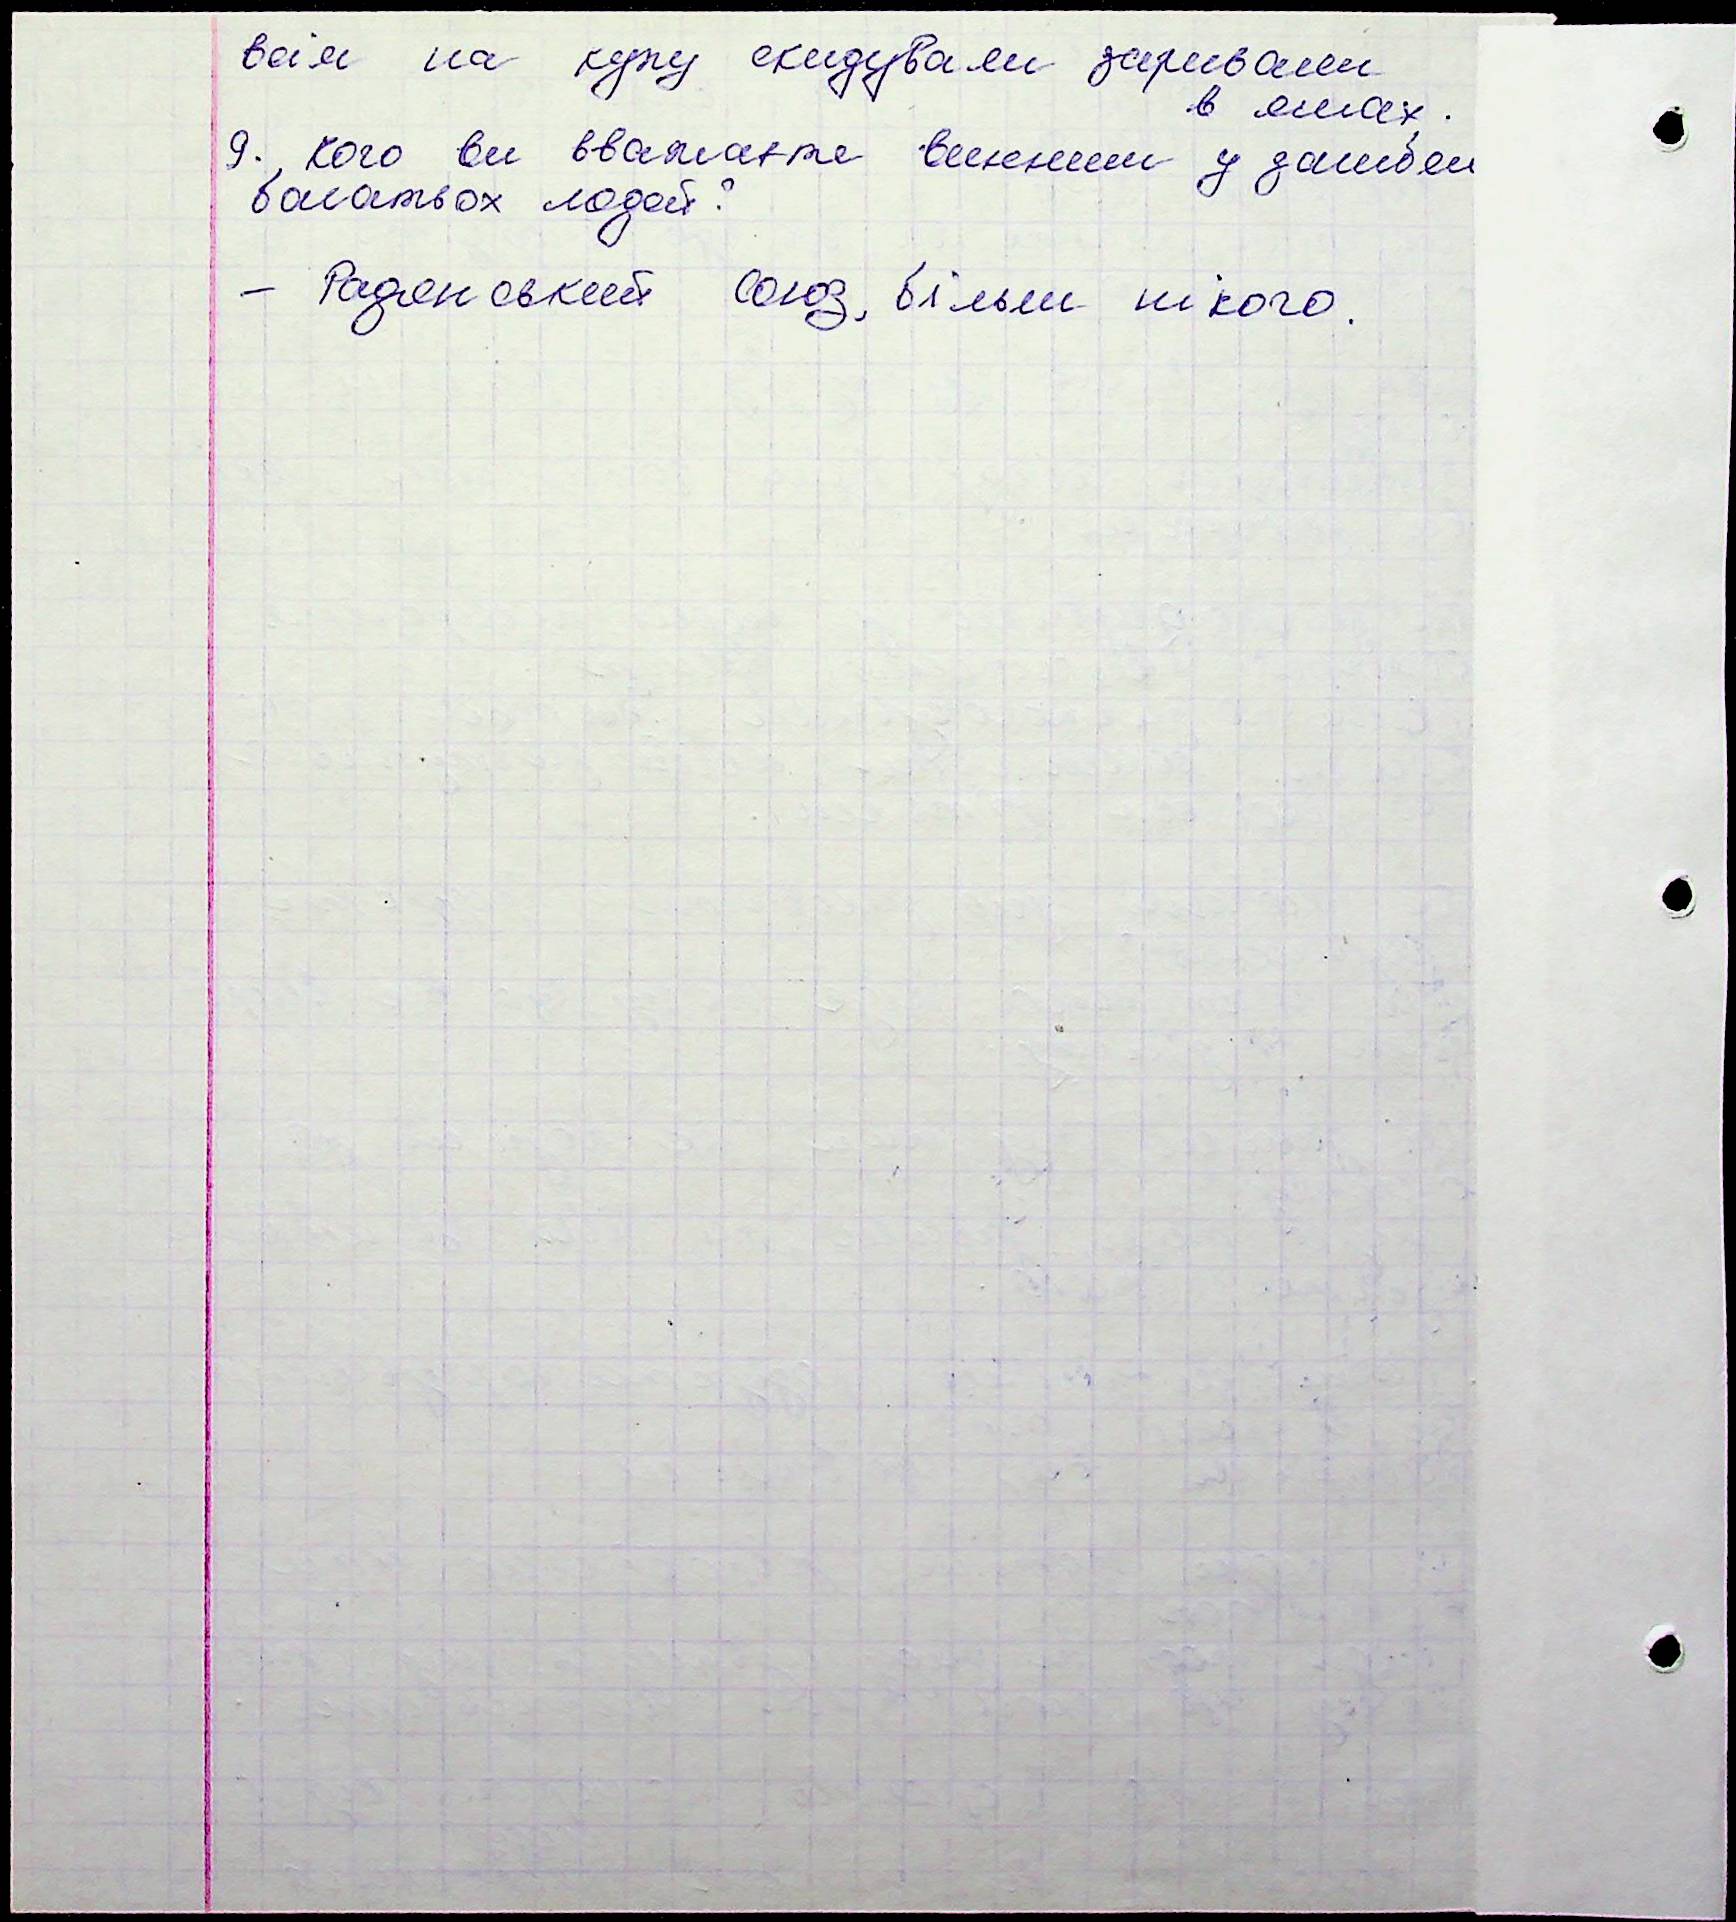 всім на купу скидували заривали
в ямах.
9. Кого ви вважаєте винним у загибелі
багатьох людей?
– Радянський Союз, більш нікого.